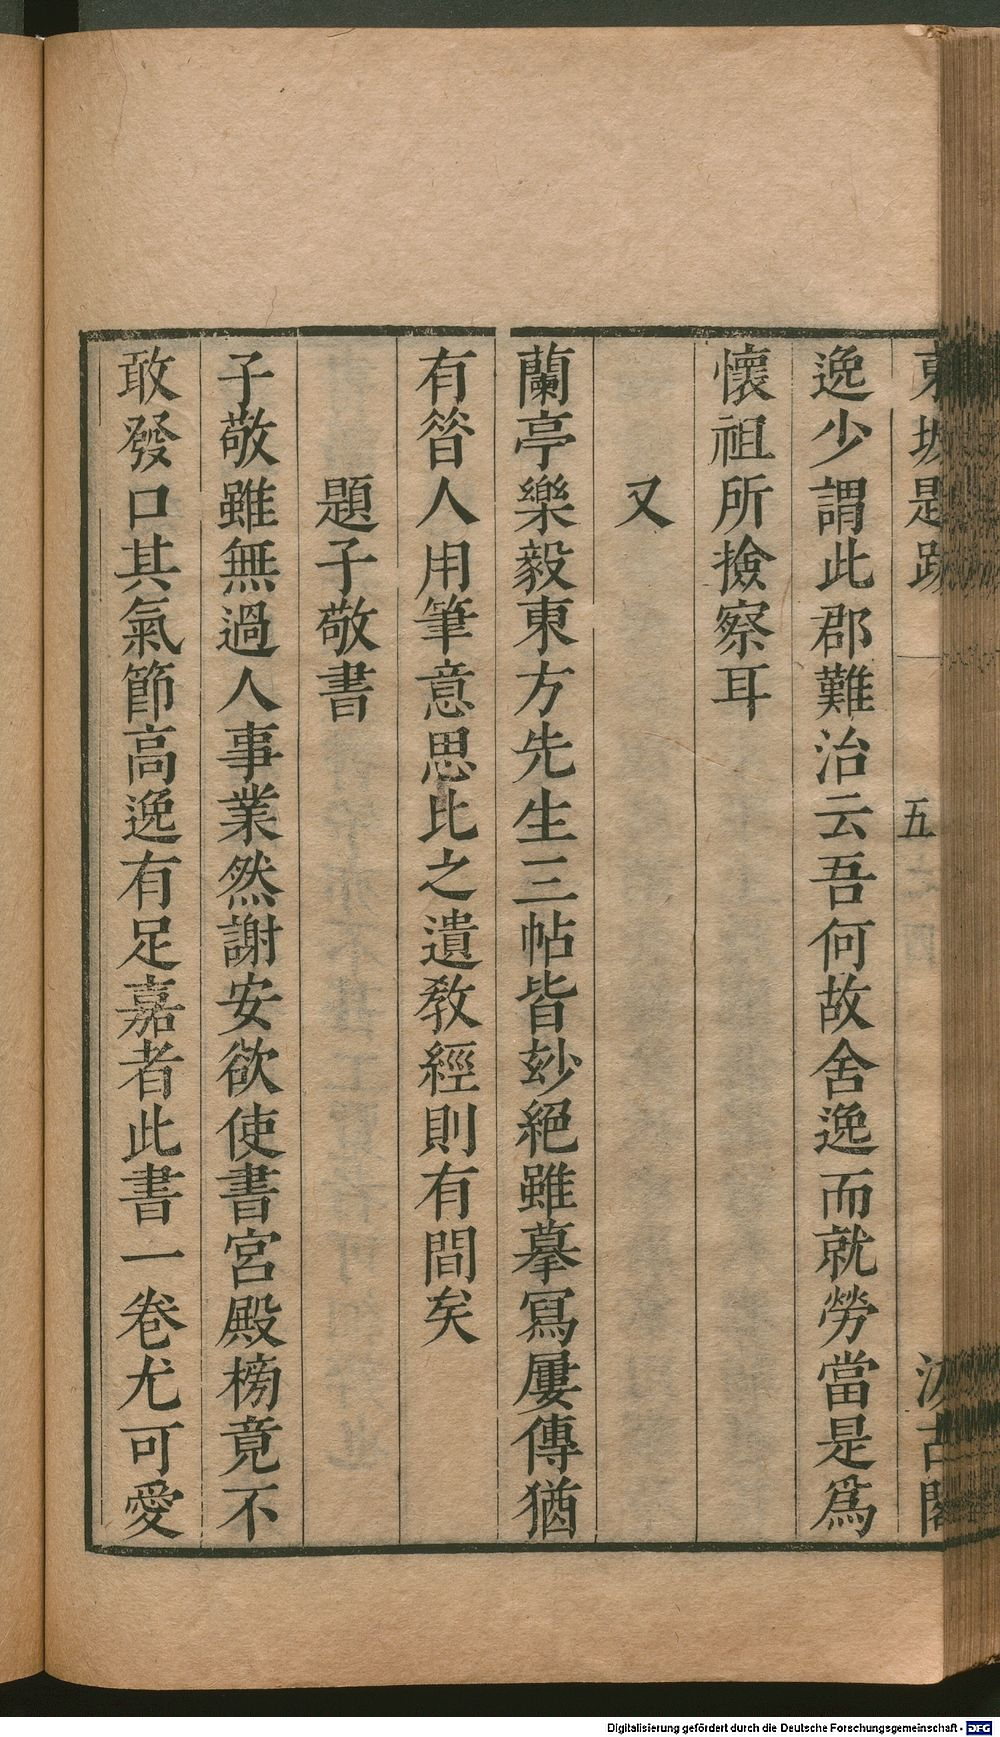 東坡題跋 五 汲古閣
逸少謂此郡難治云吾何故舍逸而就勞當是爲
懷祖所撿察耳
又
蘭亭樂毅東方先生三帖皆玅絕雖摹冩屢傳猶
有晉人用筆意思比之遺敎經則有間矣
題子敬書
子敬雖無過人事業然謝安欲使書宮殿榜竟不
敢發口其氣節高逸有足嘉者此書一卷尤可愛
Digitalisierung gefördert durch die Deutsche Forschungsgemeinschaft - DFG